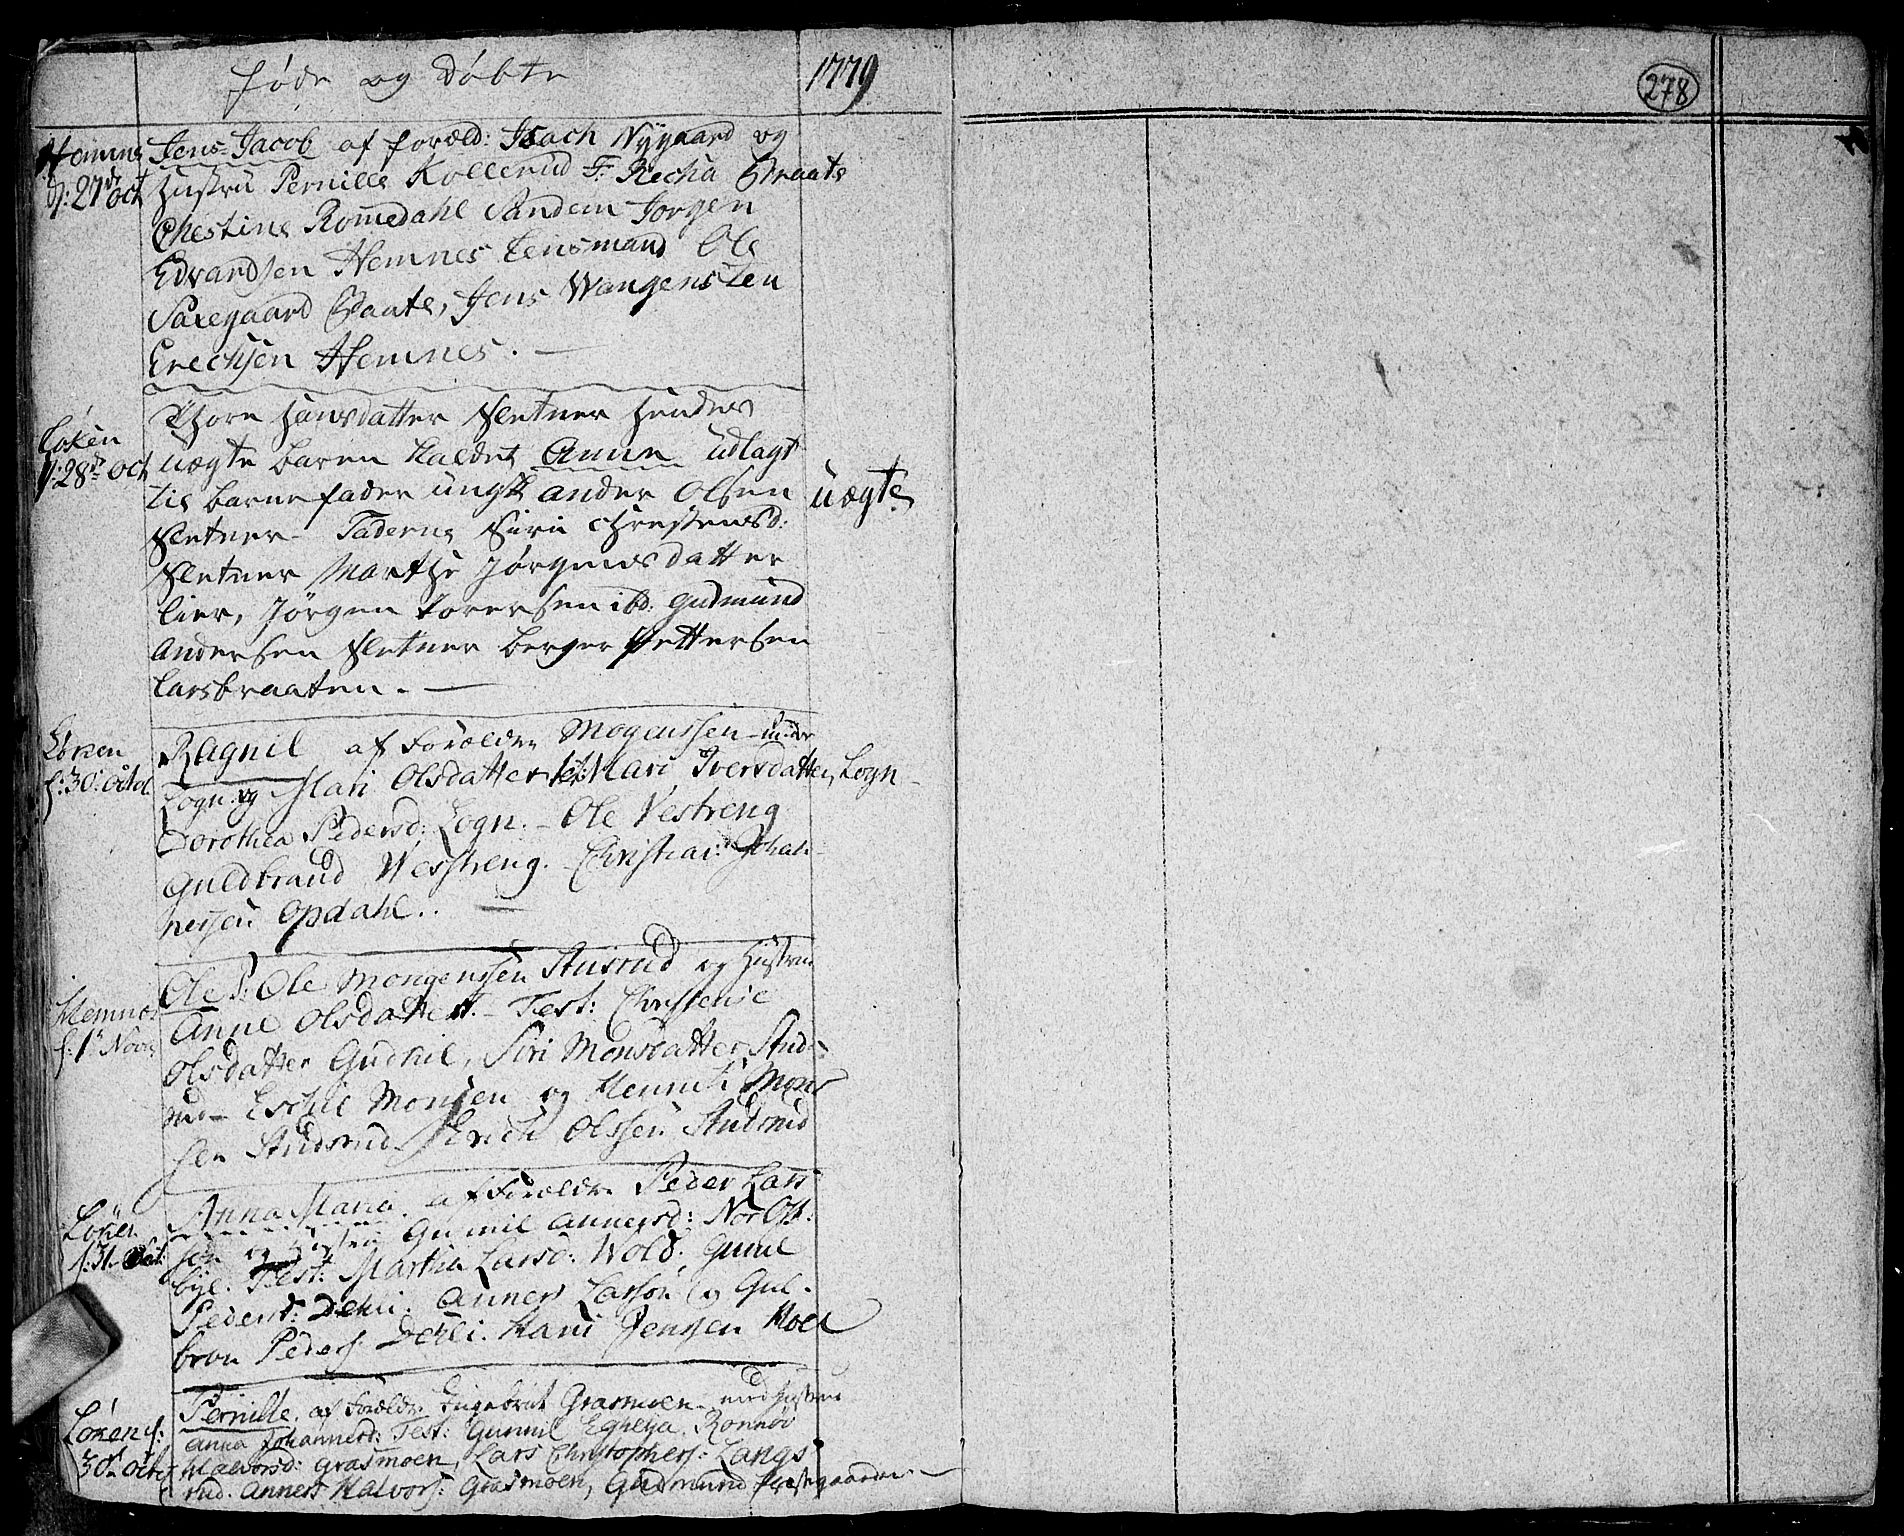 føde og døbte
1779
278
Hemnes
d: 27de oct
Jens Jacob af foræld: Isach Nygaard og
Hustru Pernille Kollerud F: Recha Braate
Chestine Romedahl Sandem Jørgen
Edvardsen Hemnes Lensmand Ole
Saxegaard Braate, Jens Wangensten
Erechsen Hemnes.
Løken
d: 28de Oct
Thore Hansdatter Sletner Hendes
uægte baren Kaldet Anne udlagt
til barnefader ungk ander Olsen
Sletner Faderne Siri Chrestensd:
Sletner Marthe Jørgensdatter
Lier, Jørgen Torersen ibd: Gudmund
Andersen Sletner berger Pettersen
Larsbraaten.
uægte
Løken
f: 30 octob
Ragnil af Forældre Mogenssen
Logn og Mari Olsdatter Mari Iversdatter, Logn
Dorothea Pedersd: Logn. Ole Vestreng
Guldbrand Vesstreng. Christian Johan
nessen Opdahl.
Hemnes
f: 1te Nov
Ole P: Ole Mongenssen Studsrud og Hustru
Anne Olsdatter Test: Christense
Olsdatter Gudkil, Siri Monsdatter Studs
rud Eschil Monsen og Henrik Mons
sen Studsrud Erich Olssen Studsrud
Løken
f: 31 Oct:
Anna Maria. af Forældre Peder Lars
sen og Hustru Gunnil Annersd: Nor Ost
bye. Test: Marthe Larsd: Wold. Gunnil
Pedersd: Dehli. Anners Larsøn og Gul-
bran Peders: Dehli. Hans Jenssen Moen
Løken f:
30 octob
Pernille. af Forældre Engebret Grasmoen med Hustru
Anna Johannersd: Test: Gunnil Egheya. Ronnøv
Halvorsd: Grasmoen, Lars Christophers: Langs
rud. Anners Halvors: Grasmoen, Gudmund Prestegaarden